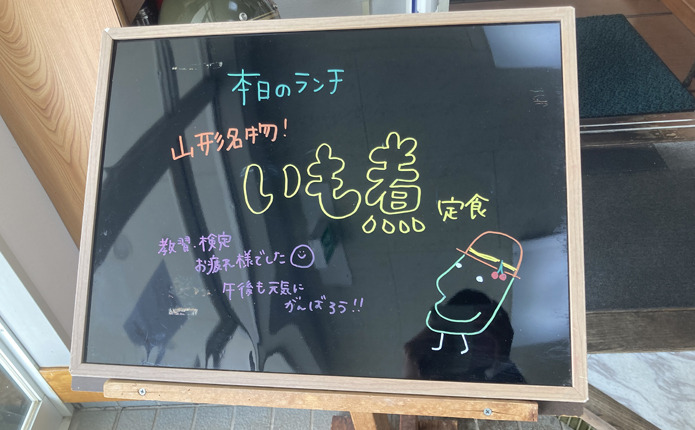 本日のランチ
山形名物!
いも煮 定食
教習・検定
お疲れ様でした
午後も元気に
がんばろう!!